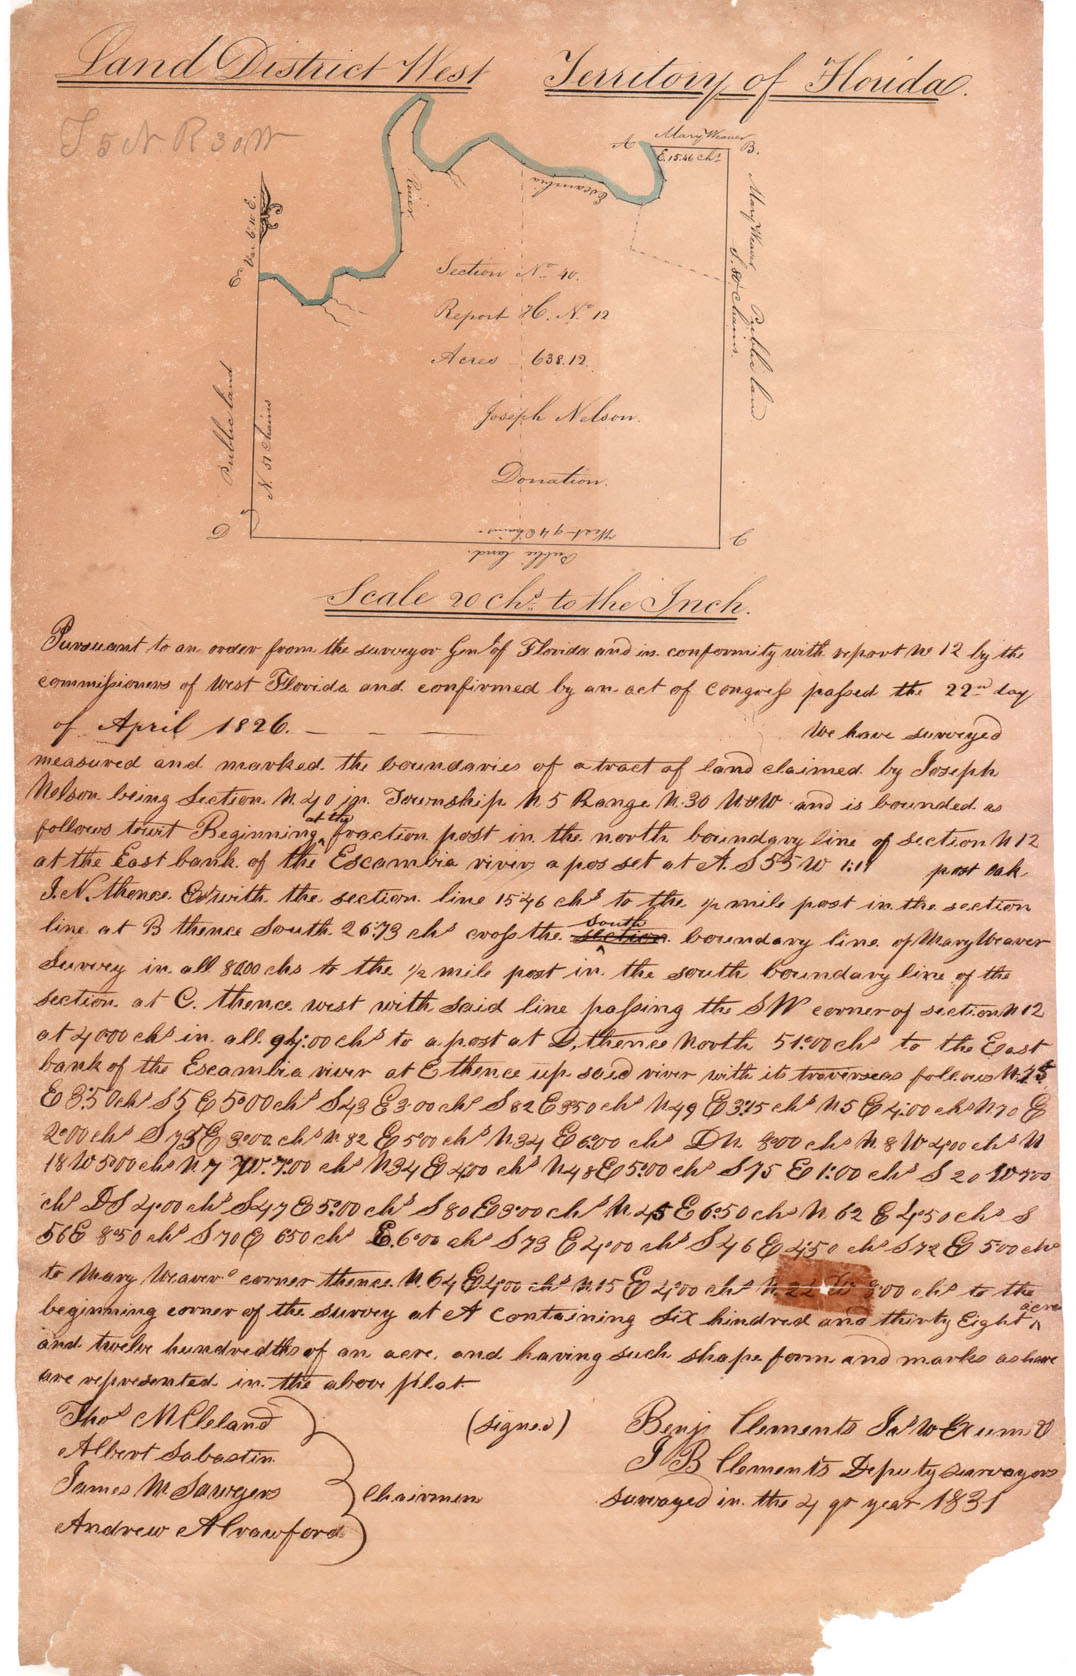 Land District West Territory of Florida.
T 5 N R 30 W
A Mary Weaver B.
E. 15.46 chs
River
Escambia
Var. 6° 10' E.
E
Mary Weaver Public land
S. 80 Chains.
Section No 40.
Report H. No 12
Acres 638.12
Joseph Nelson.
Donation.
Public land
N. 51 Chains
D
West 94 Chains
C
Public land.
Scale 20 chs. to the Inch.
Pursuant to an order from the surveyor Genl of Florida and in conformity with report No 12 by the
commissioners of West Florida and confirmed by an act of Congress passed the 22nd day
of April 1826. — — — We have surveyed
measured and marked the boundaries of a tract of land claimed by Joseph
Nelson being Section N. 40 in Township N 5 Range N. 30 N & W and is bounded as
follows towit Beginning at the fraction post in the north boundary line of section N 12
at the East bank of the Escambia river, a pos set at A. S 55 W 1:11 post oak
J. N. thence East with the section line 15:46 chs to the ½ mile post in the section
line at B thence South 26:73 chs cross the section south boundary line of Mary Weaver
Survey in all 80.00 chs to the ½ mile post in the south boundary line of the
section at C. thence west with said line passing the SW corner of section N 12
at 40:00 chs in all 94:00 chs to a post at D, thence North 51:00 chs to the East
bank of the Escambia river at E thence up said river with its traverse as follows N. 75
E 3:50 chs S 5 E 5:00 chs S 43 E 3:00 chs S 82 E 3:50 chs N 49 E 3:15 chs N 5 E 4:00 chs N 70 E
2:00 chs S 75 E 3:00 chs N. 82 E 5:00 chs N 34 E 6:00 chs D N 8:00 chs N. 8 W 4:00 chs N
18 W 5:00 chs N 7 W. 7:00 chs N 34 E 4:00 chs N 48 E 5:00 chs S 75 E 1:00 chs S 20 W 7:00
chs D S 4:00 chs S 47 E 5:00 chs S 80 E 3:00 chs N. 45 E 6:50 chs N. 62 E 4:50 chs S
56 E 8:50 chs S 70 E 6:50 chs E. 6:00 chs S 73 E 4:00 chs S 46 E 4:50 chs S 72 E 5:00 chs
to Mary Weavers corner thence N. 64 E 4:00 chs N. 15 E 4:00 chs N. 22 W 3:00 chs to the
beginning corner of the survey at A containing six hindred and thirty Eight acres
and twelve hundredths of an acre. and having such shape form and marks as have
are represented in the above plat.
Thos McCleland (signed) Benj Clements Jas W Exum &
Albert Sabastin J B Clements Deputy surveyors
James M Sawyers Chairmen surveyed in the 4 qr year 1831
Andrew A Crawford